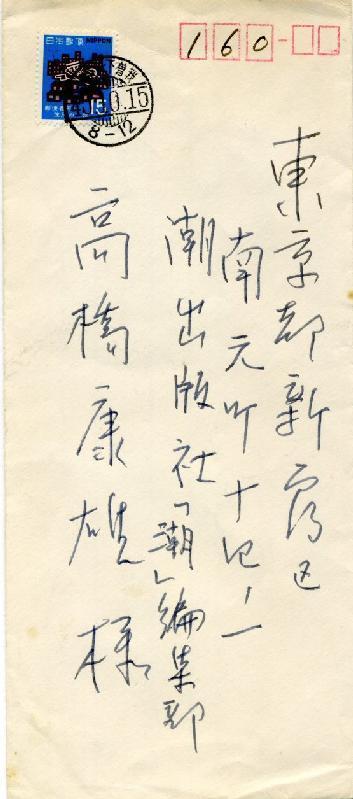 日本郵便 NIPPON
15
0.15
8-12
160
東京都新宿区
南元町十四ノ一
潮出版社「潮」編集部
高橋康雄様